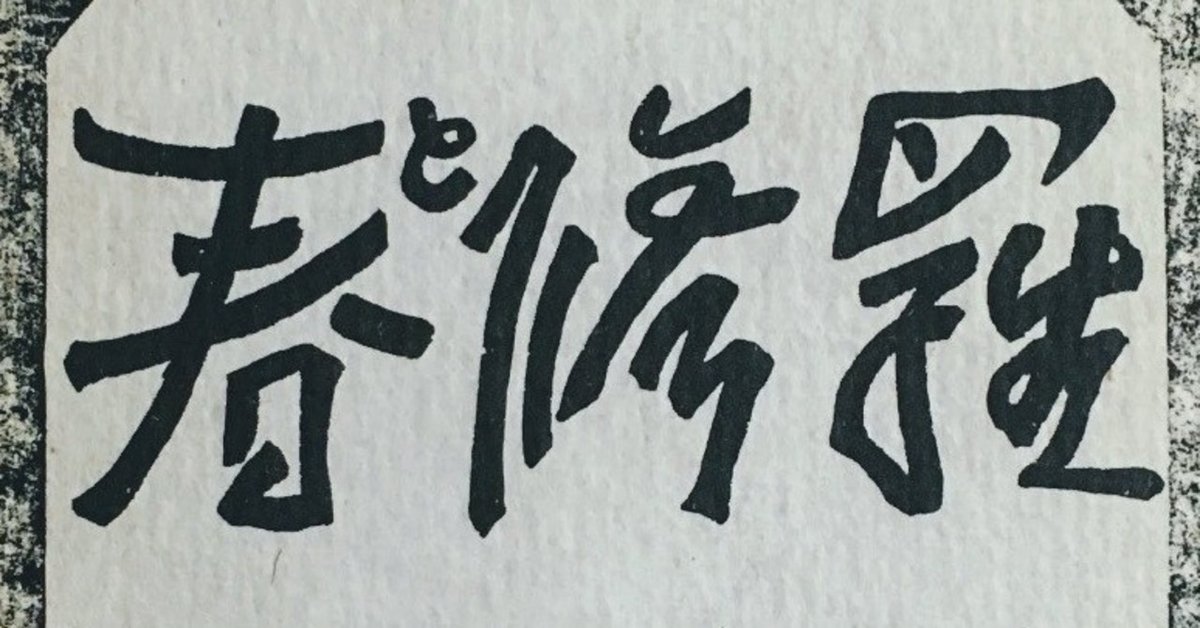 春と修羅